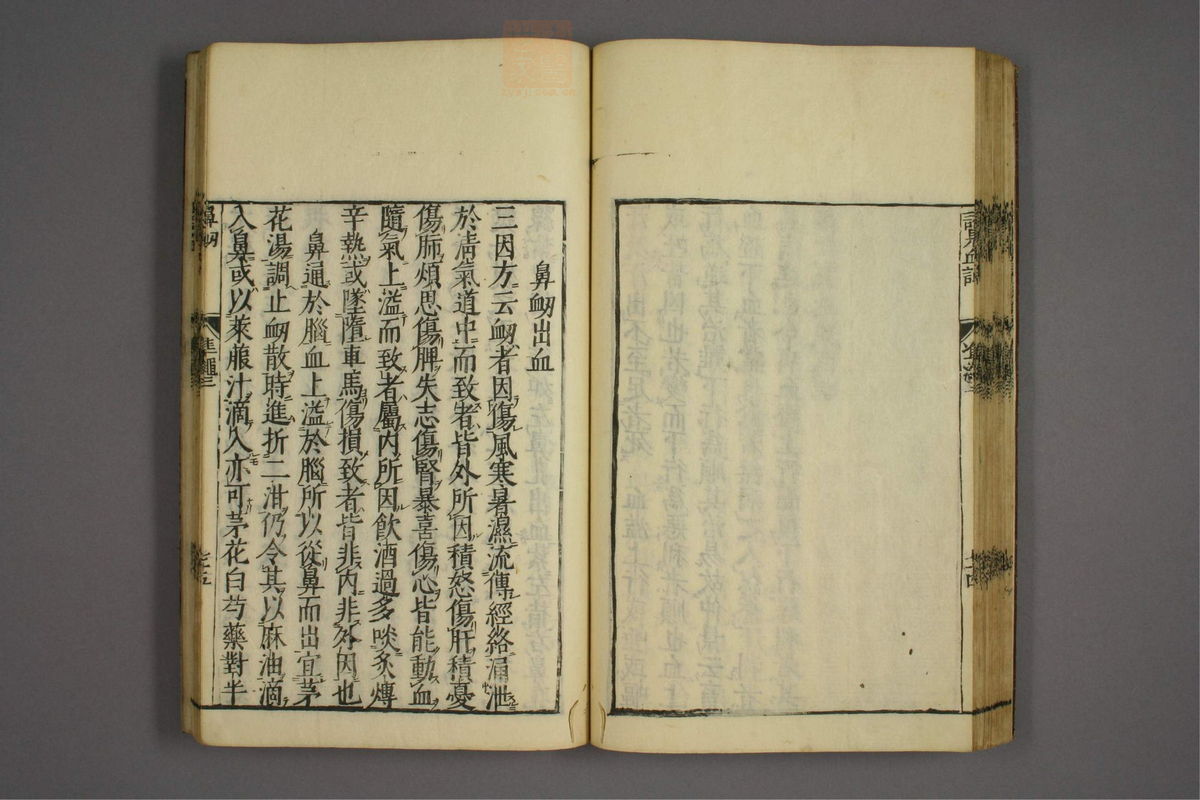 鼻衂出血
三因方云衂者因傷風寒暑濕流傳經絡涌泄
於清氣道中而致者皆外所因積怒傷肝積憂
傷肺煩思傷脾失志傷腎暴喜傷心皆能動血
隨氣上溢而致者屬內所因飲酒過多啖炙煿
辛熱或墜墮車馬傷損致者皆非內非外因也
鼻通於腦血上溢於腦所以從鼻而出宜茅
花湯調止衂散時進折二泔仍令其以麻油滴
入鼻或以萊菔汁滴入亦可茅花白芍藥對半
鼻衂
準繩三
七十五
諸見血證
七十四